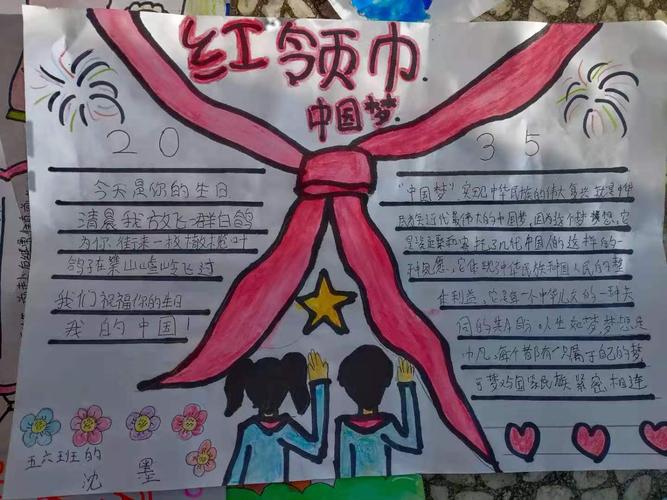 红领巾
中国梦
20 35
今天是你的生日
清晨我放飞一群白鸽
为你衔来一枚橄榄叶
鸽子在崇山峻岭飞过
我们祝福你的生日
我的中国!
"中国梦"实现中华民族的伟大复兴就是中华
民族近代最伟大的中国梦,因为这个梦想,它
是凝聚和寄托了几代中国人的这样的一
种夙愿,它体现中华民族和中国人民的
利益,它是每一个中华儿女的一种共
同的
每个都有一个属于自己的梦
梦必与国家民族紧密相连
五六班的
沈墨